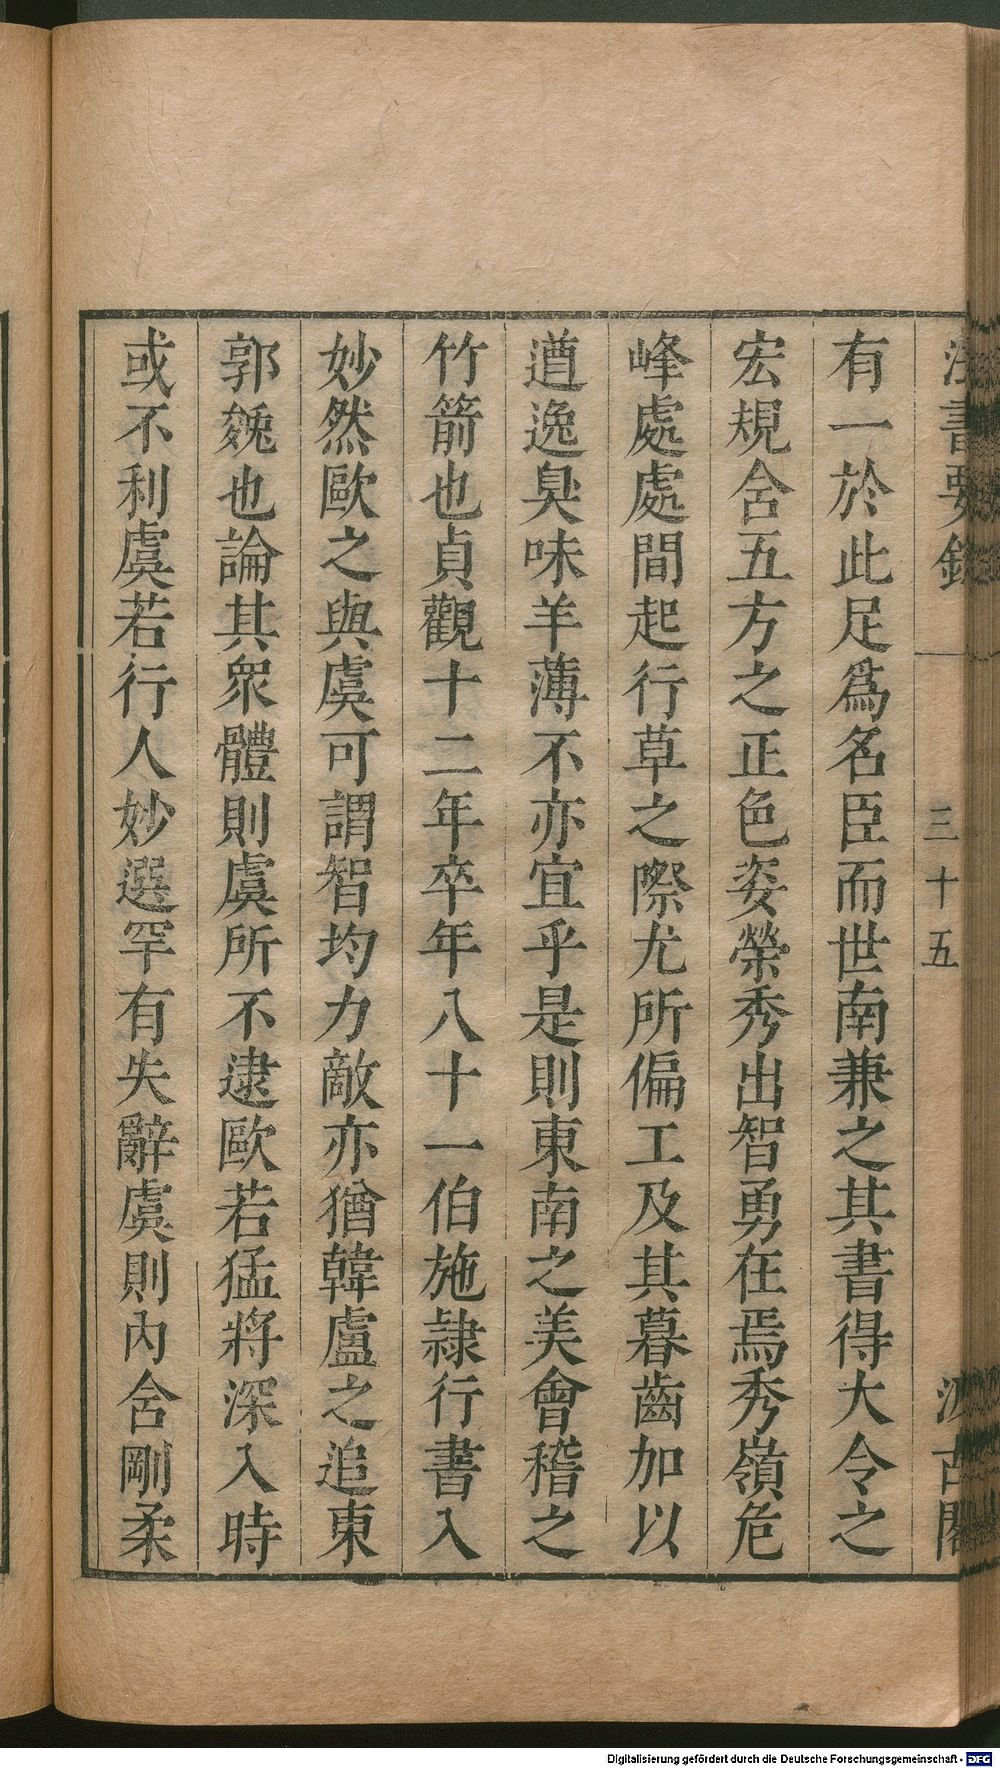 法書要錄
三十五
汲古閣
有一於此足爲名臣而世南兼之其書得大令之
宏規含五方之正色姿榮秀出智勇在焉秀嶺危
峰處處間起行草之際尤所偏工及其暮齒加以
遒逸臭味羊薄不亦宜乎是則東南之美會稽之
竹箭也貞觀十二年卒年八十一伯施隷行書入
妙然歐之與虞可謂智均力敵亦猶韓盧之追東
郭㕙也論其衆體則虞所不逮歐若猛將深入時
或不利虞若行人妙選罕有失辭虞則內含剛柔
Digitalisierung gefördert durch die Deutsche Forschungsgemeinschaft - DFG